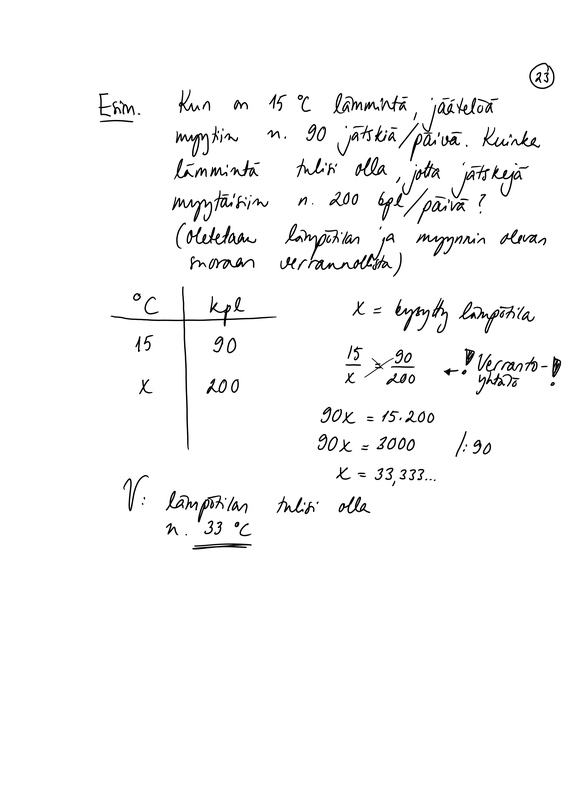 23
Esim. Kun on 15 °C lämmintä, jäätelöä
myytiin n. 90 jätskiä/päivä. Kuinka
lämmintä tulisi olla, jotta jätskejä
myytäisiin n. 200 kpl/päivä?
(oletetaan lämpötilan ja myynnin olevan
suoraan verrannollista)
°C kpl
15 90
x 200
x = kysytty lämpötila
15/x = 90/200 ← ! Verranto-
yhtälö !
90x = 15·200
90x = 3000 /:90
x = 33,333...
V: lämpötilan tulisi olla
n. 33 °C